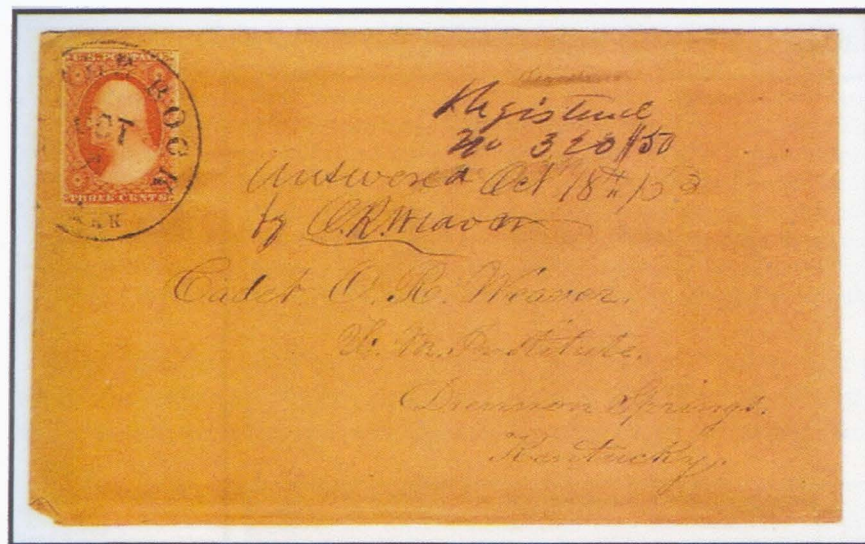 ROCK
OCT
ARK
THREE CENTS
Registered
No 320 $50
Answered Oct 18th/53
by O.R. Weaver
Cadet O. R. Weaver.
K. M. Institute.
Drennon Springs.
Kentucky.